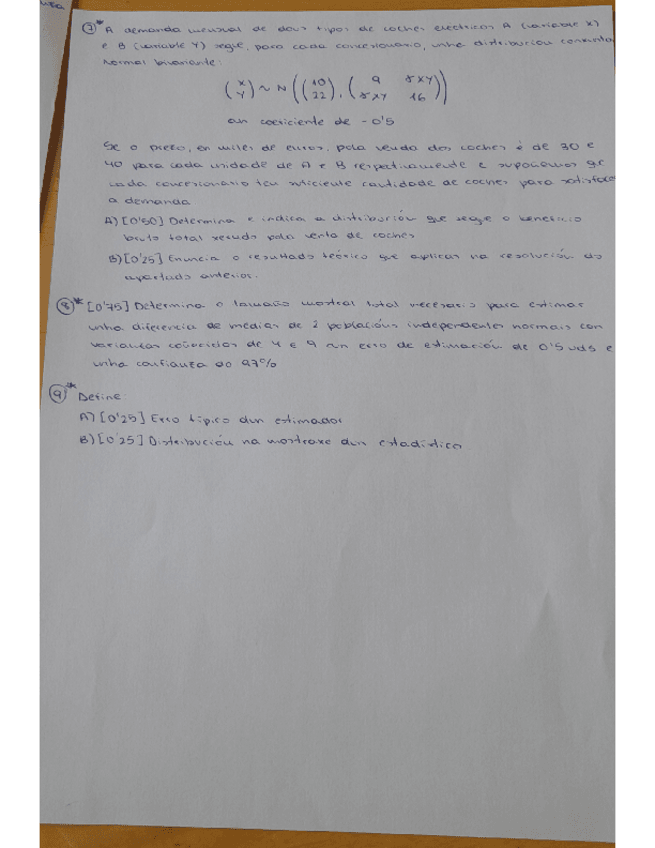 nta
7* A demanda mensual de dous tipos de coches eléctricos A (variable X)
e B (variable Y) segue, para cada concesionario, unha distribución conxunta
normal bivariante:
(X Y) ~ N((10 22), (9 γxy γxy 16))
cun coeficiente de -0'5
Se o prezo, en miles de euros, pola venda dos coches é de 30 e
40 para cada unidade de A e B respectivamente e supoñemos qe
cada concesionario ten suficiente cantidade de coches para satisfacer
a demanda
A) [0'50] Determina e indica a distribución que segue o beneficio
bruto total xerado pola venta de coches
B) [0'25] Enuncia o resultado teórico qe aplicas na resolución do
apartado anterior.
8* [0'75] Determina o tamaño mostral total necesario para estimar
unha diferencia de medias de 2 poboacións independentes normais con
varianzas coñecidas de 4 e 9 cun erro de estimación de 0'5 uds e
unha confianza do 97%
9* Define:
A) [0'25] Erro típico dun estimador
B) [0'25] Distribución na mostraxe dun estadístico